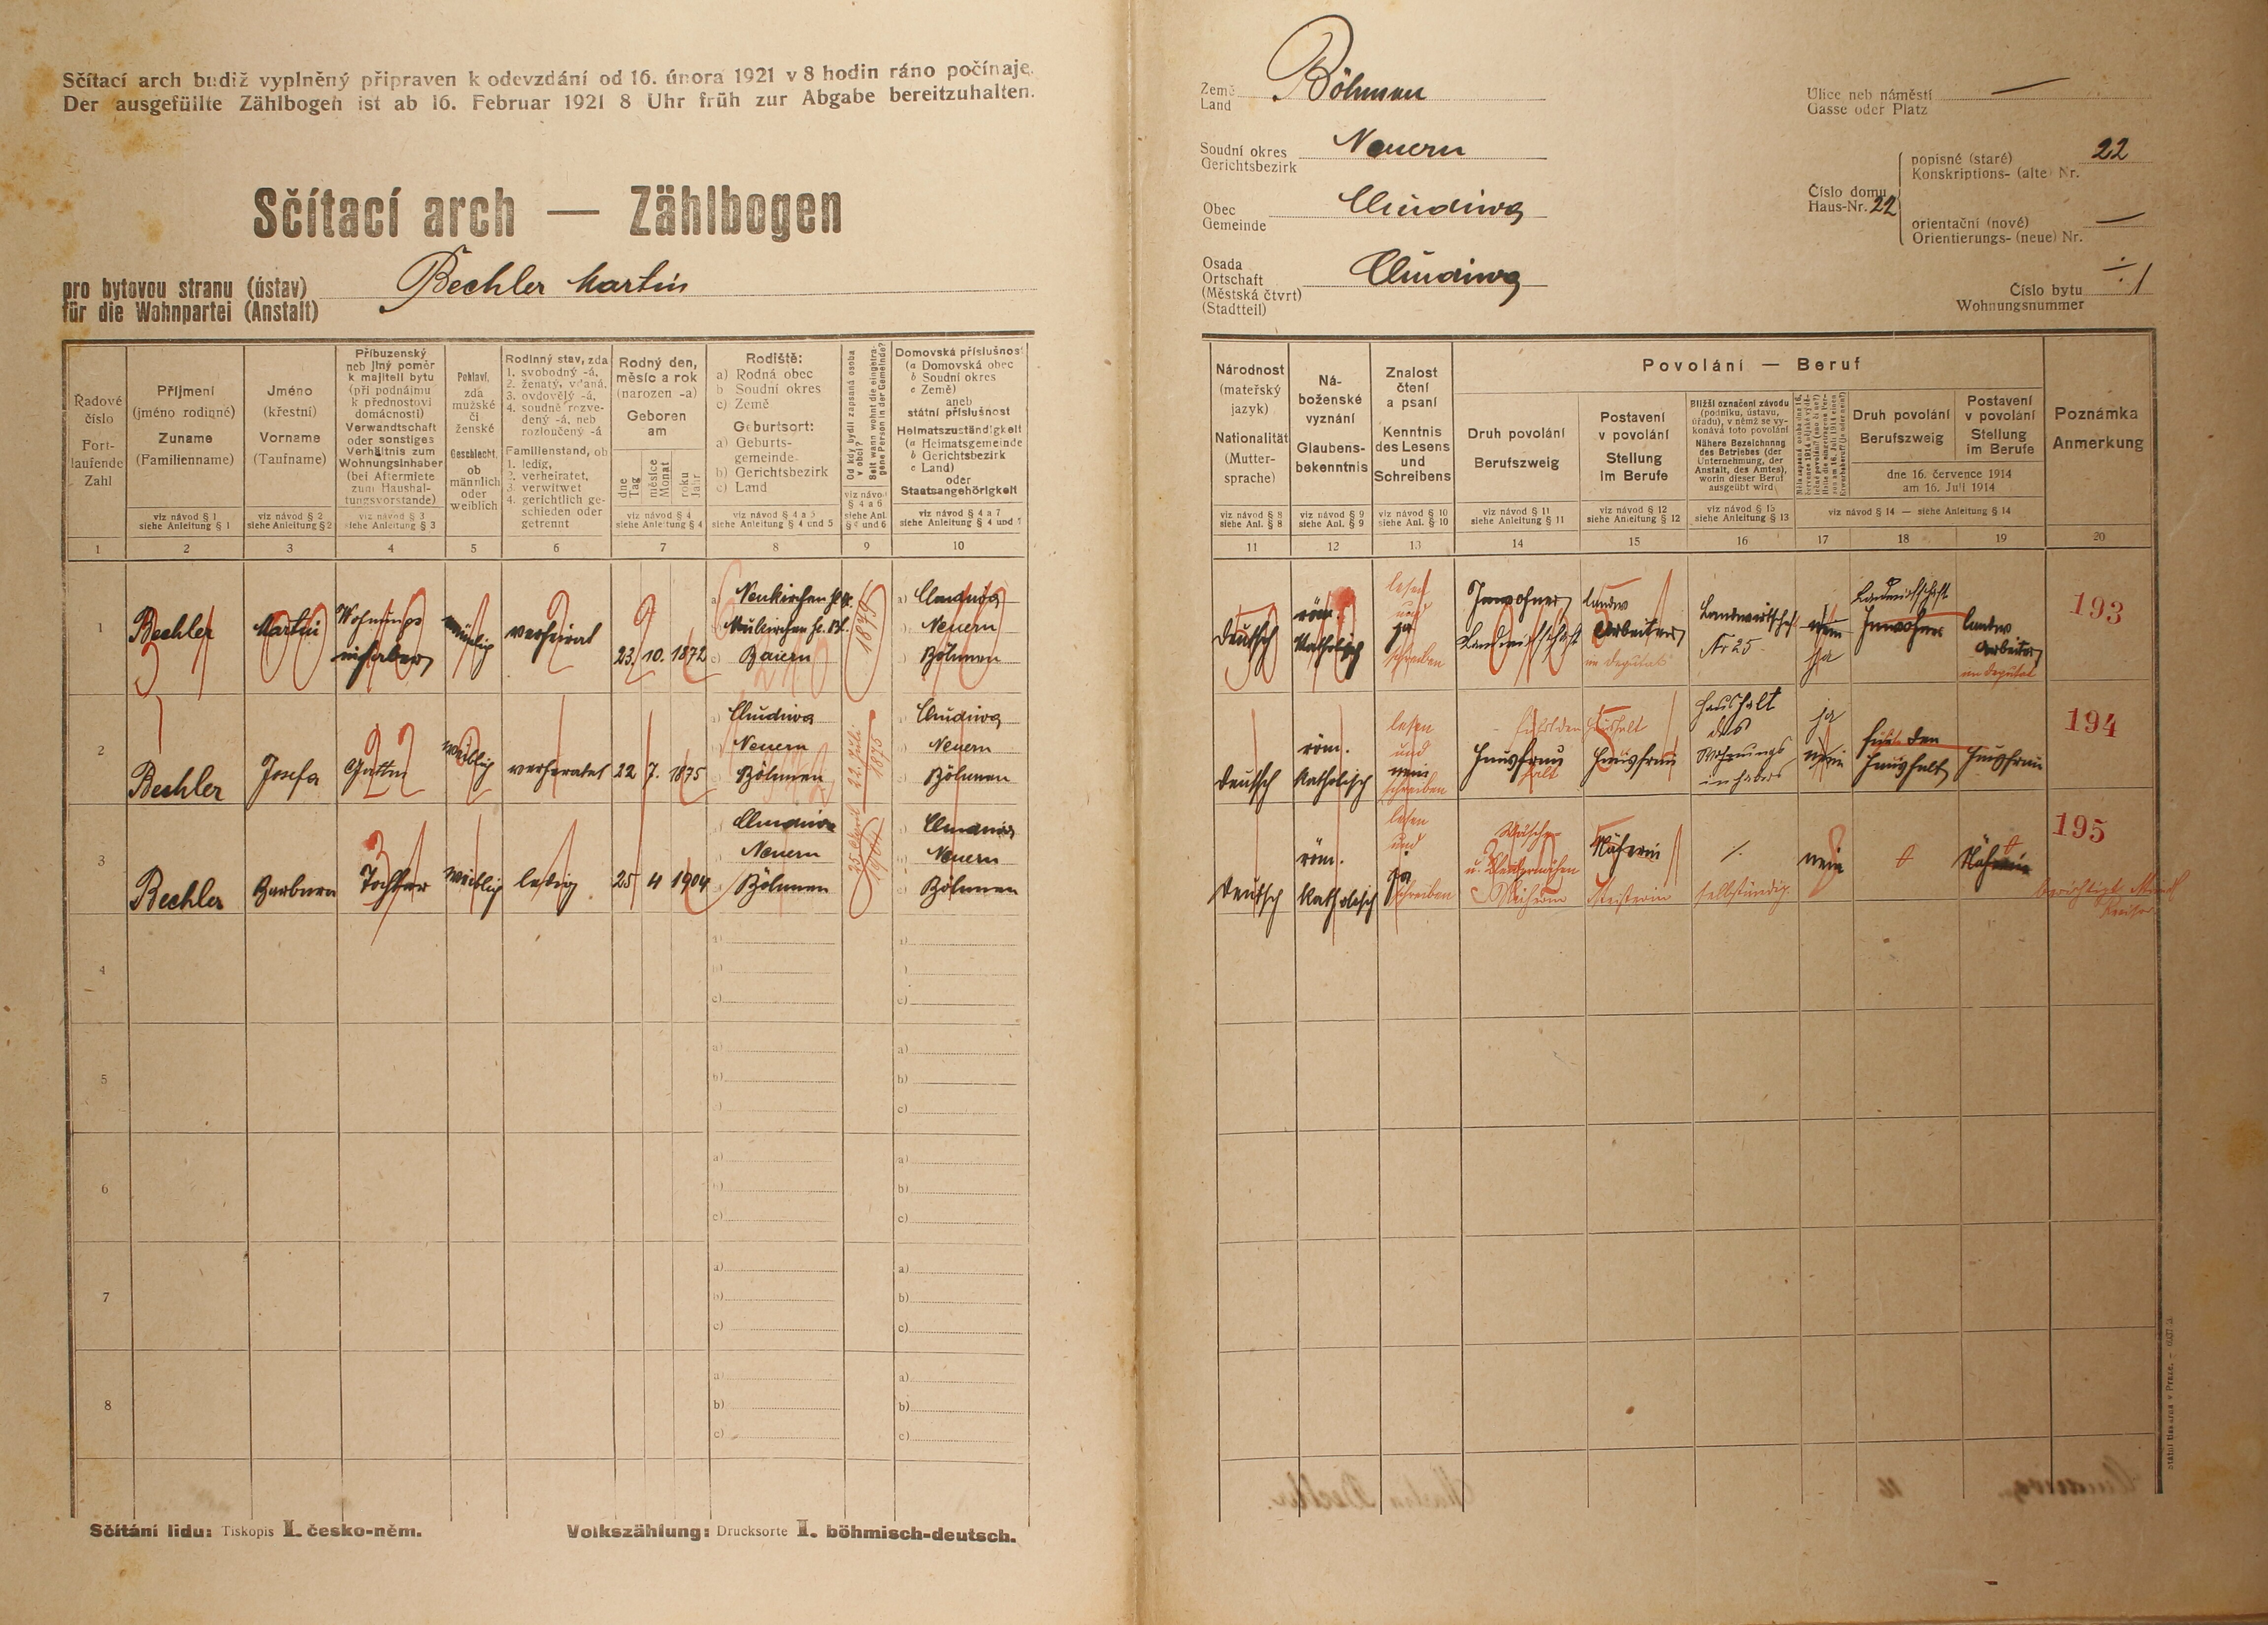 Sčítací arch budiž vyplněný připraven k odevzdání od 16. února 1921 v 8 hodin ráno počínaje.
Der ausgefüllte Zählbogen ist ab 16. Februar 1921 8 Uhr früh zur Abgabe bereitzuhalten.
Sčítací arch — Zählbogen
pro bytovou stranu (ústav)
für die Wohnpartei (Anstalt)
Bechler Martin
Země
Land
Böhmen
Soudní okres
Gerichtsbezirk
Neuern
Obec
Gemeinde
Chudiwa
Osada
Ortschaft
(Městská čtvrt)
(Stadtteil)
Chudiwa
Ulice neb náměstí —
Gasse oder Platz
Číslo domu
Haus-Nr. 22
popisné (staré)
Konskriptions- (alte) Nr. 22
orientační (nové)
Orientierungs- (neue) Nr. —
Číslo bytu
Wohnungsnummer 1
Řadové
číslo
Fort-
laufende
Zahl
1
Příjmení
(jméno rodinné)
Zuname
(Familienname)
viz návod § 1
siehe Anleitung § 1
2
Jméno
(křestní)
Vorname
(Taufname)
viz návod § 2
siehe Anleitung § 2
3
Příbuzenský
neb jiný poměr
k majiteli bytu
(při podnájmu
k přednostovi
domácnosti)
Verwandtschaft
oder sonstiges
Verhältnis zum
Wohnungsinhaber
(bei Aftermiete
zum Haushal-
tungsvorstande)
viz návod § 3
siehe Anleitung § 3
4
Pohlaví,
zda
mužské
či
ženské
Geschlecht,
ob
männlich
oder
weiblich
5
Rodinný stav, zda
1. svobodný -á,
2. ženatý, vdaná,
3. ovdovělý -á,
4. soudně rozve-
dený -á, neb
rozloučený -á
Familienstand, ob
1. ledig,
2. verheiratet,
3. verwitwet
4. gerichtlich ge-
schieden oder
getrennt
6
Rodný den,
měsíc a rok
(narozen -a)
Geboren
am
dne
Tag
měsíce
Monat
roku
Jahr
viz návod § 4
siehe Anleitung § 4
7
Rodiště:
a) Rodná obec
b) Soudní okres
c) Země
Geburtsort:
a) Geburts-
gemeinde
b) Gerichtsbezirk
c) Land
viz návod § 4 a 5
siehe Anleitung § 4 und 5
8
Od kdy bydlí zapsaná osoba
v obci?
Seit wann wohnt die eingetra-
gene Person in der Gemeinde?
viz návod
§ 4 a 6
siehe Anl.
§ 4 und 6
9
Domovská příslušnost
(a Domovská obec
b Soudní okres
c Země)
aneb
státní příslušnost
Heimatszuständigkeit
(a Heimatsgemeinde
b Gerichtsbezirk
c Land)
oder
Staatsangehörigkeit
viz návod § 4 a 7
siehe Anleitung § 4 und 7
10
Národnost
(mateřský
jazyk)
Nationalität
(Mutter-
sprache)
viz návod § 8
siehe Anl. § 8
11
Ná-
boženské
vyznání
Glaubens-
bekenntnis
viz návod § 9
siehe Anl. § 9
12
Znalost
čtení
a psaní
Kenntnis
des Lesens
und
Schreibens
viz návod § 10
siehe Anl. § 10
13
Povolání — Beruf
Druh povolání
Berufszweig
viz návod § 11
siehe Anleitung § 11
14
Postavení
v povolání
Stellung
im Berufe
viz návod § 12
siehe Anleitung § 12
15
Bližší označení závodu
(podniku, ústavu,
úřadu), v němž se vy-
konává toto povolání
Nähere Bezeichnung
des Betriebes (der
Unternehmung, der
Anstalt, des Amtes),
worin dieser Beruf
ausgeübt wird
viz návod § 13
siehe Anleitung § 13
16
17
Druh povolání
Berufszweig
Postavení
v povolání
Stellung
im Berufe
dne 16. července 1914
am 16. Juli 1914
viz návod § 14 — siehe Anleitung § 14
18
19
Poznámka
Anmerkung
20
1
Bechler
Martin
Wohnungs
inhaber
männlich
verheirat
23. 10. 1872
Neukirchen hl. B.
Neukirchen hl. Bl.
Baiern
1899
Chudiwa
Neuern
Böhmen
Deutsch
röm.
Katholisch
lesen
und
ja
schreiben
Inwohner
Landwirtschaft
Landw
Arbeiter
im Deputat
Landwirtschaft
Nr 25
nein
ja
Landwirtschaft
Inwohner
Landw
Arbeiter
im Deputat
193
2
Bechler
Josefa
Gattin
weiblich
verheiratet
22 7. 1875
Chudiwa
Neuern
Böhmen
22. Juli
1875
Chudiwa
Neuern
Böhmen
Deutsch
röm.
Katholisch
lesen
und
nein
schreiben
führt den Haushalt
Hausfrau
Hausfrau
Haushalt
des
Wohnungs
inhabers
ja
nein
führt den
Haushalt
Hausfrau
194
3
Bechler
Barbara
Tochter
weiblich
ledig
25 4 1904
Chudiwa
Neuern
Böhmen
25. April
1904
Chudiwa
Neuern
Böhmen
Deutsch
röm.
Katholisch
lesen
und
ja
schreiben
Wäsche-
Näherin
Meisterin
selbständig
nein
Näherin
195
4
a)
b)
c)
a)
)
c)
5
a)
b)
c)
a)
b)
c)
6
a)
b)
c)
a)
b)
c)
7
a)
b)
c)
a)
b)
c)
8
a)
b)
c)
a)
b)
c)
Sčítání lidu: Tiskopis I. česko-něm.
Volkszählung: Drucksorte I. böhmisch-deutsch.